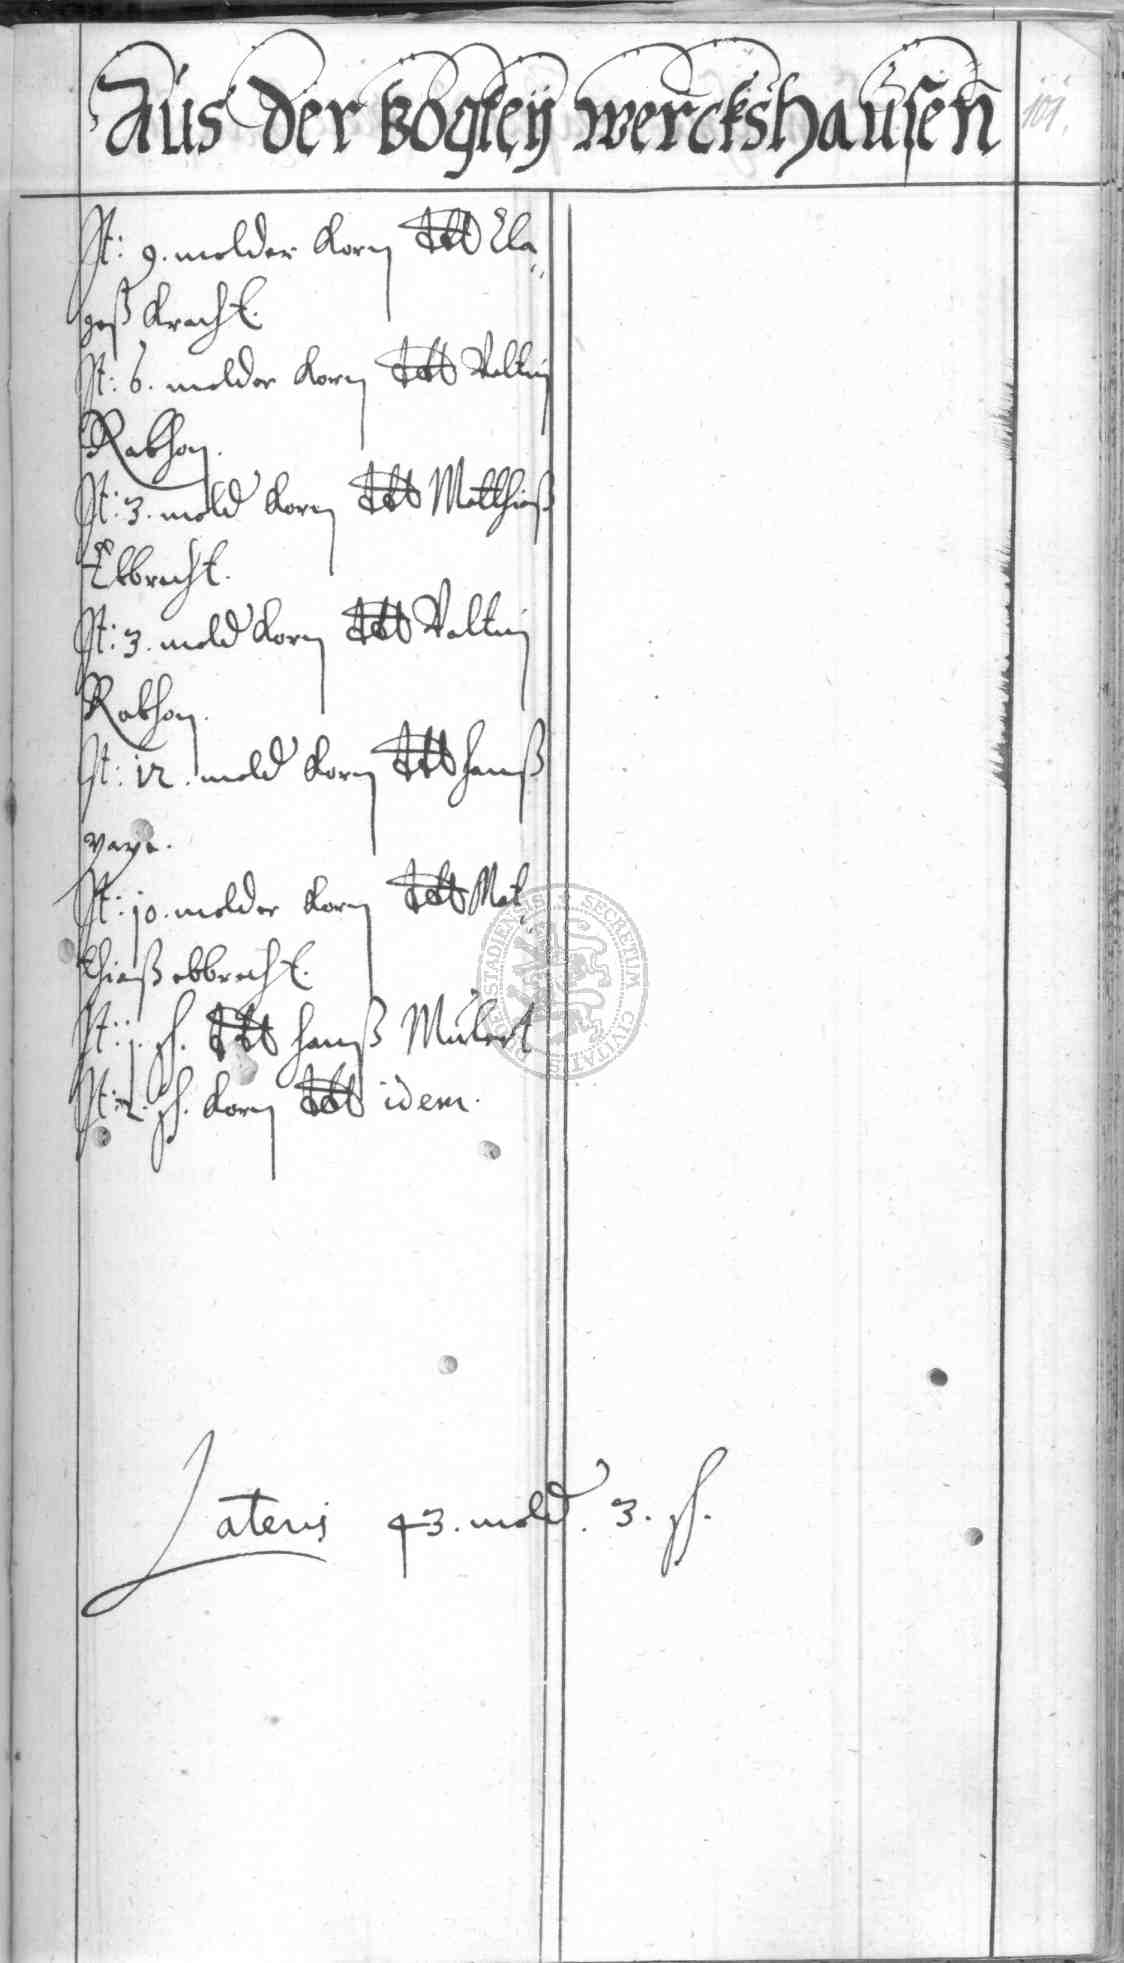 Aus der Vogtey werckshausen
101.
It: 9. molder Korn Cla„
geß Kracht.
It: 6. molder Korn Valtin
Rabhon.
It: 3. mold Korn Matthieß
Ebbrecht.
It: 3. mold Korn Valtin
Rabhon.
It: 12. mold Korn hanß
It: 10. molder Korn Mat„
thieß ebbrecht.
It: 1. sch. hanß Mülert
It: 2. sch. Korn idem.
SECRETUM CIVITATIS
Lateris 43. mold. 3. sch.